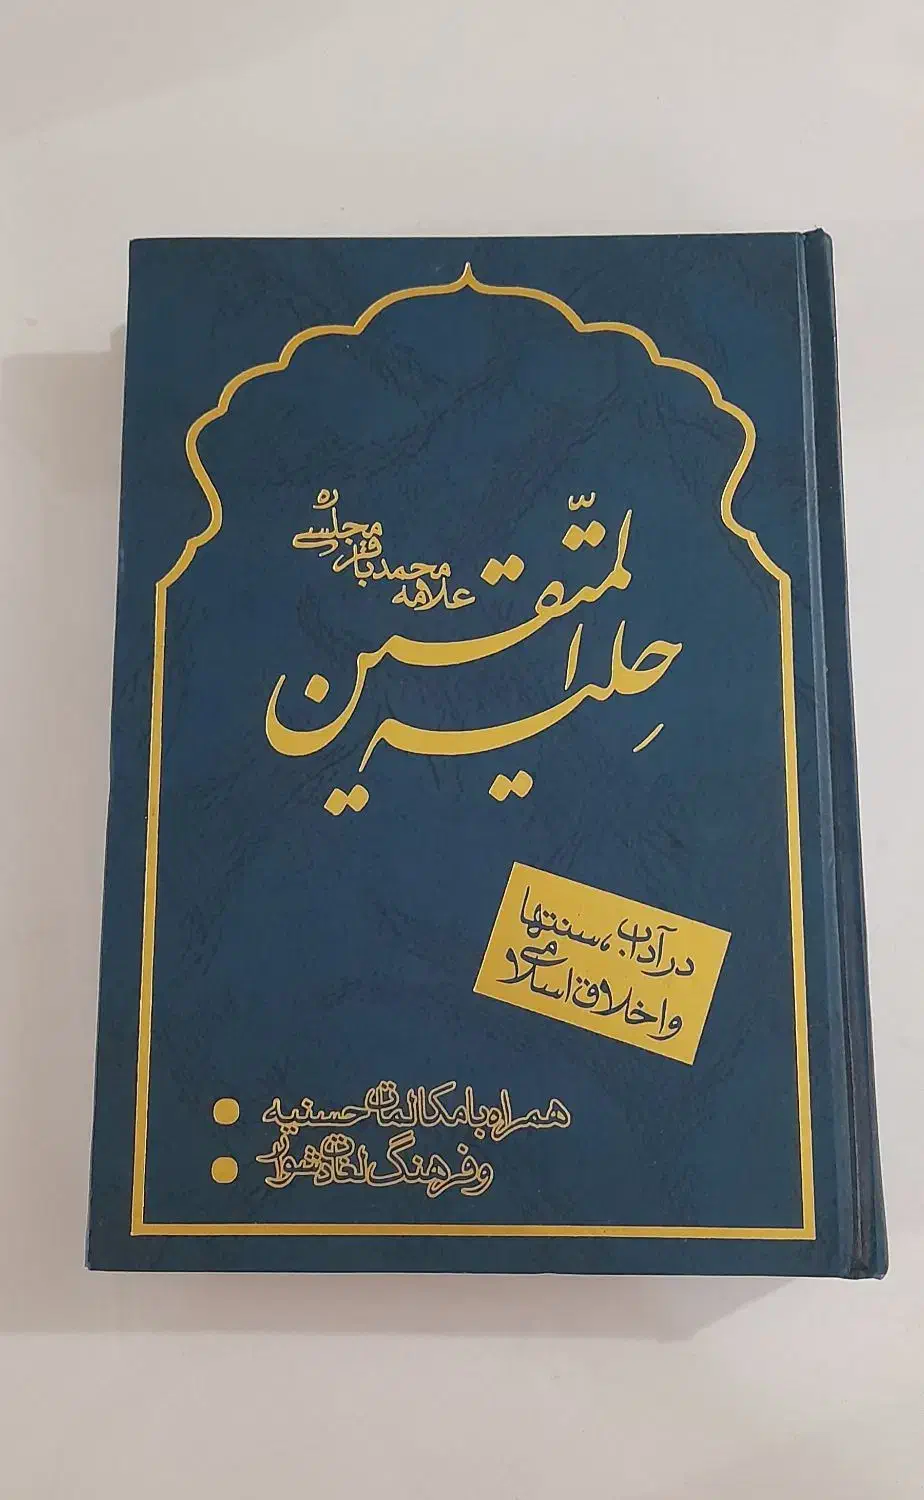 حِلیة المتّقین
علامه محمدباقر مجلسی ره
در آداب، سنتها
و اخلاق اسلامی
همراه با مکالمات حسنیه
و فرهنگ لغات دشوار